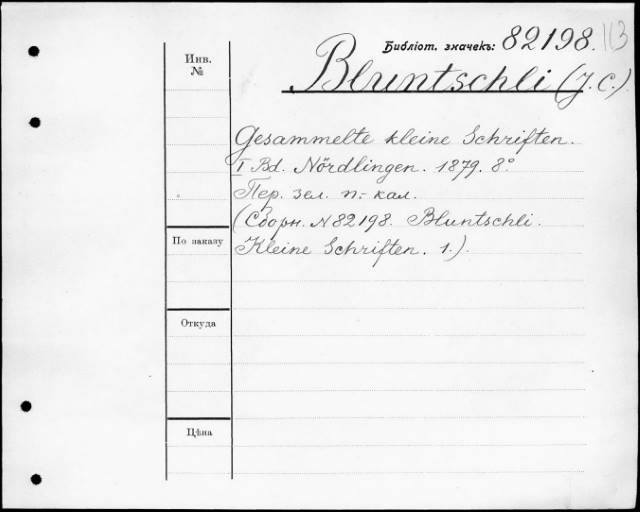 Библіот. значекъ: 82198. 113
Bluntschli (J. C.)
Инв.
№
Gesammelte kleine Schriften.
I Bd. Nördlingen. 1879. 8°
Пер. зел. п.-кал.
(Сборн. N 82198. Bluntschli.
Kleine Schriften. 1.).
По заказу
Откуда
Цѣна